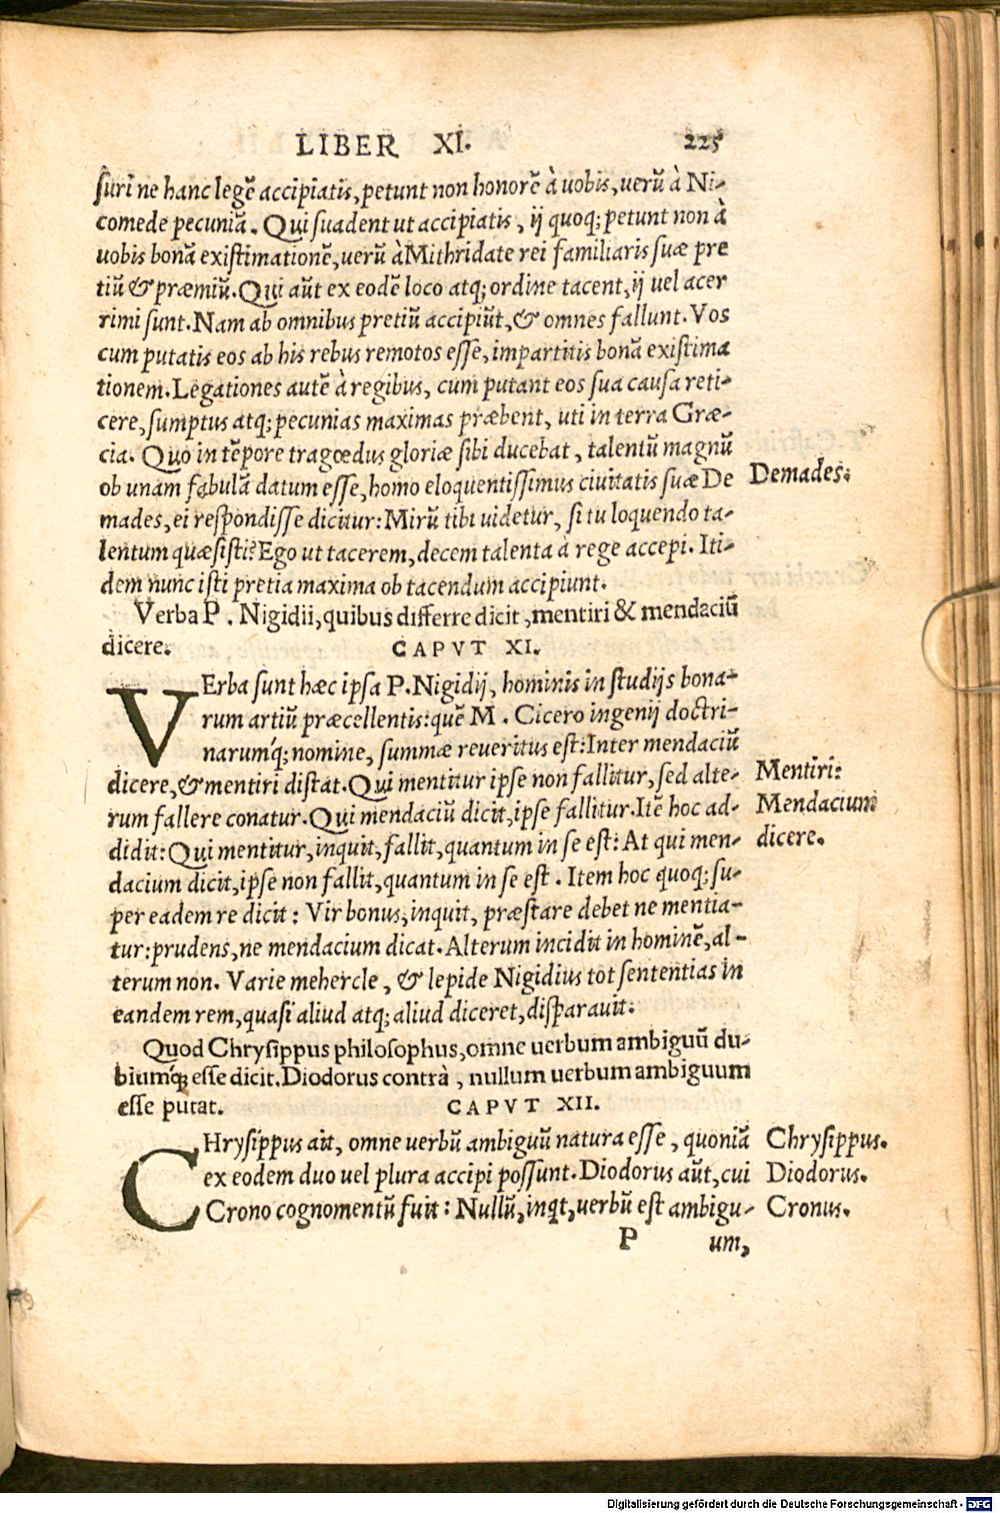 LIBER XI. 225
suri ne hanc legẽ accipiatis, petunt non honorẽ à uobis, uerũ à Ni-
comede pecuniã. Qui suadent ut accipiatis, ij quoq; petunt non à
uobis bonã existimationẽ, uerũ à Mithridate rei familiaris suæ pre
tiũ & præmiũ. Qui aũt ex eodẽ loco atq; ordine tacent, ij uel acer
rimi sunt. Nam ab omnibus pretiũ accipiũt, & omnes fallunt. Vos
cum putatis eos ab his rebus remotos esse, impartitis bonã existima
tionem. Legationes autẽ à regibus, cum putant eos sua causa reti-
cere, sumptus atq; pecunias maximas præbent, uti in terra Græ-
cia. Quo in tẽpore tragœdus gloriæ sibi ducebat, talentũ magnũ
ob unam fabulã datum esse, homo eloquentissimus ciuitatis suæ De
Demades.
mades, ei respondisse dicitur: Mirũ tibi uidetur, si tu loquendo ta-
lentum quæsisti? Ego ut tacerem, decem talenta à rege accepi. Iti-
dem nunc isti pretia maxima ob tacendum accipiunt.
Verba P. Nigidii, quibus differre dicit, mentiri & mendaciũ
dicere. CAPVT XI.
VErba sunt hæc ipsa P. Nigidij, hominis in studijs bona-
rum artiũ præcellentis: quẽ M. Cicero ingenij doctri-
narumq́; nomine, summæ reueritus est: Inter mendaciũ
dicere, & mentiri distat. Qui mentitur ipse non fallitur, sed alte-
Mentiri:
rum fallere conatur. Qui mendaciũ dicit, ipse fallitur. Itẽ hoc ad-
Mendacium
didit: Qui mentitur, inquit, fallit, quantum in se est: At qui men-
dicere.
dacium dicit, ipse non fallit, quantum in se est. Item hoc quoq; su-
per eadem re dicit: Vir bonus, inquit, præstare debet ne mentia-
tur: prudens, ne mendacium dicat. Alterum incidit in hominẽ, al-
terum non. Varie mehercle, & lepide Nigidius tot sententias in
eandem rem, quasi aliud atq; aliud diceret, disparauit.
Quod Chrysippus philosophus, omne uerbum ambiguũ du-
biumq́; esse dicit. Diodorus contrà, nullum uerbum ambiguum
esse putat. CAPVT XII.
CHrysippus ait, omne uerbũ ambiguũ natura esse, quoniã
Chrysippus.
ex eodem duo uel plura accipi possunt. Diodorus aũt, cui
Diodorus.
Crono cognomentũ fuit: Nullũ, inqt, uerbũ est ambigu-
Cronus.
P um,
Digitalisierung gefördert durch die Deutsche Forschungsgemeinschaft - DFG